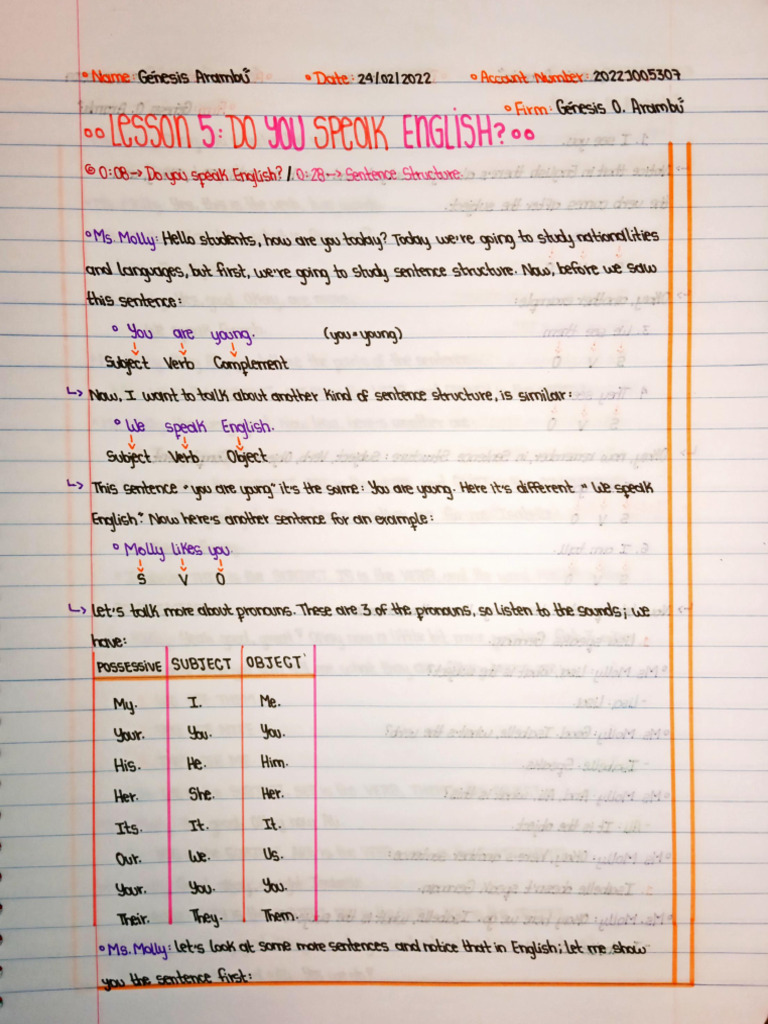 ° Name: Génesis Arambú ° Date: 24/02/2022 ° Account Number: 20221005307
° Firm: Génesis O. Arambú
°° Lesson 5: Do you speak English? °°
0:08 → Do you speak English? / 0:28 → Sentence Structure.
° Ms. Molly: Hello students, how are you today? Today we're going to study nationalities
and languages, but first, we're going to study sentence structure. Now, before we saw
this sentence:
° You are young. (you = young)
Subject Verb Complement
↳ Now, I want to talk about another kind of sentence structure, is similar:
° We speak English.
Subject Verb Object
↳ This sentence "you are young" it's the same: You are young. Here it's different " We speak
English." Now here's another sentence for an example:
° Molly likes you.
S V O
↳ Let's talk more about pronouns. These are 3 of the pronouns, so listen to the sounds; we
have:
POSSESSIVE SUBJECT OBJECT
My. I. Me.
Your. You. You.
His. He. Him.
Her. She. Her.
Its. It. It.
Our. We. Us.
Your. You. You.
Their. They. Them.
° Ms. Molly: Let's look at some more sentences and notice that in English; let me show
you the sentence first: